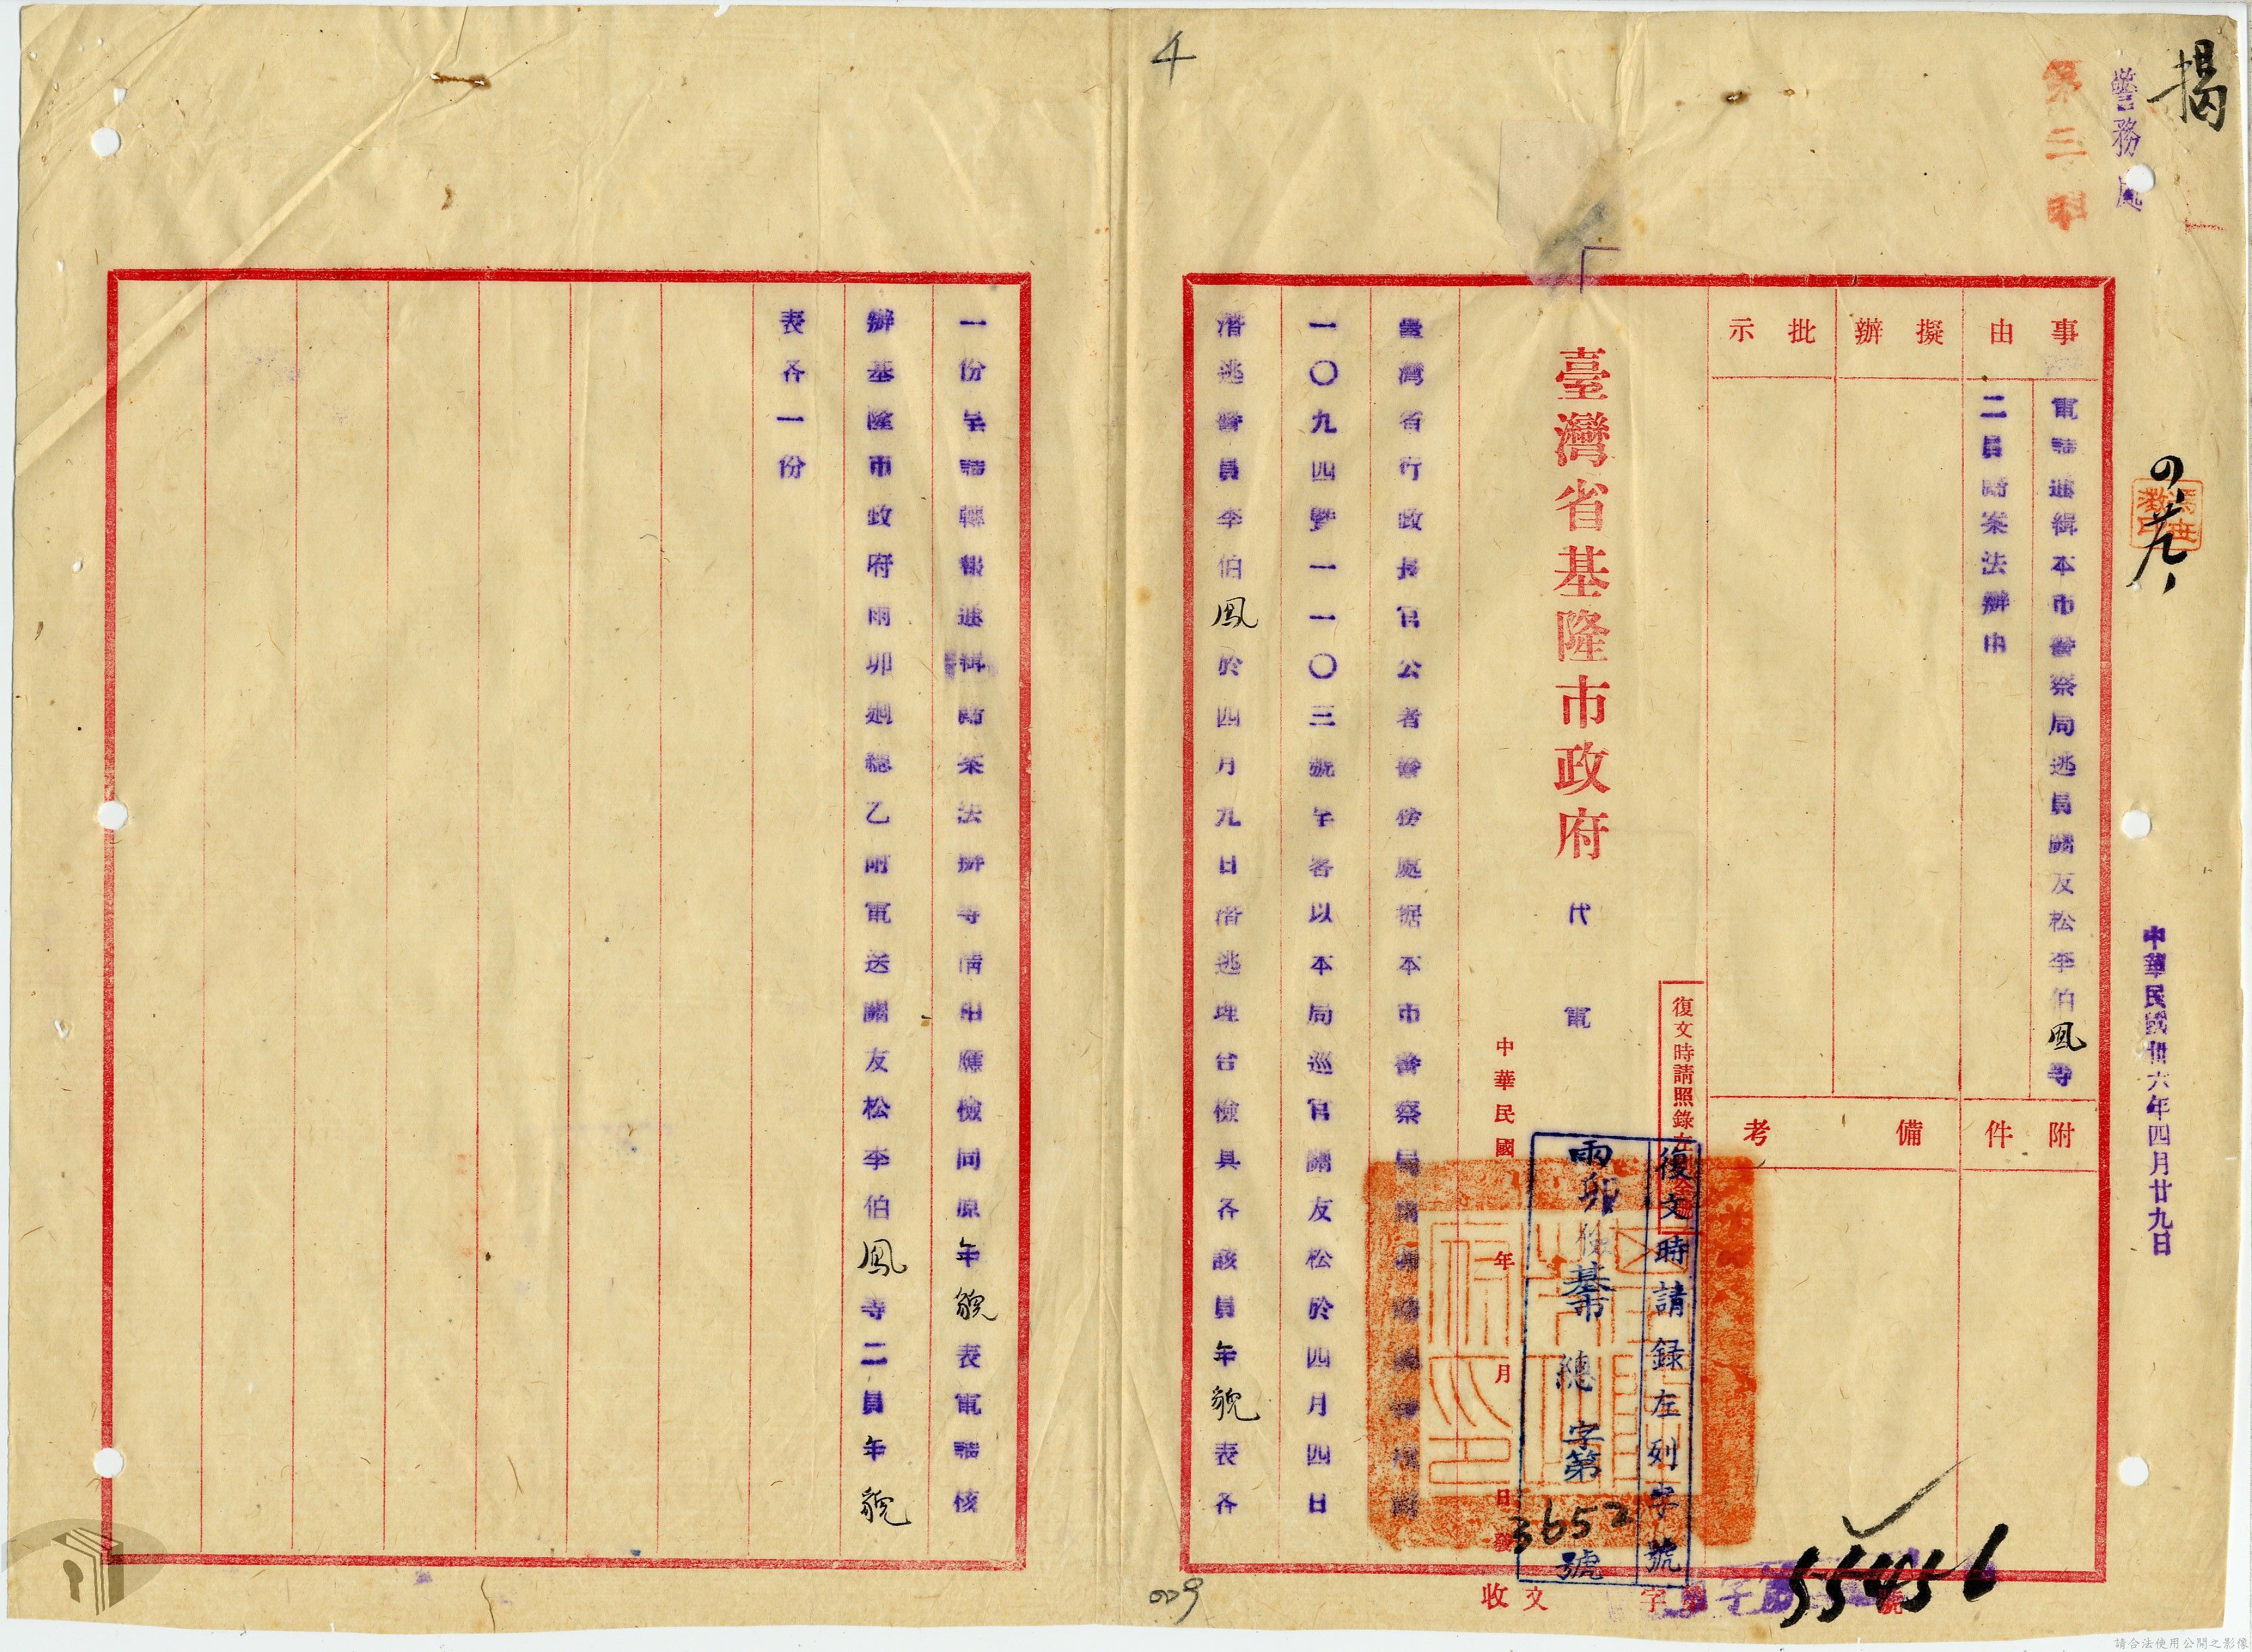 揭
警務處
第三科
中華民國卅六年四月廿九日
事由
電請通緝本市警察局逃員關友松李伯鳳等
二員歸案法辦由
擬辦
批示
附件
備考
復文時請照錄左
臺灣省基隆市政府
代電
中華民國
年
月
日發
復文時請録左列字號
兩卯
基市
總
字第
3652
號
臺灣省行政長官公署警務處据本市警察局
一〇九四暨一一〇三號呈畧以本局巡官關友松於四月四日
潛逃警員李伯鳳於四月九日潛逃理合檢具各該員年貌表各
一份呈請轉報通緝歸案法辦等情用應檢同原年貌表電請核
辦基隆市政府兩卯廻總乙附電送關友松李伯鳳等二員年貌
表各一份
收文
字
號
55456
009
請合法使用公開之影像